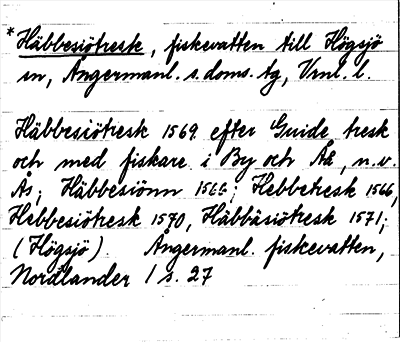 *Häbbesiötresk, fiskevatten till Högsjö
sn, Ångermanl. s. doms. tg, Vrnl. l.
Häbbesiötresk 1569 efter Guide tresk
och med fiskare i By och Ås, n.v.
Ås; Häbbesiönn 1566; Hebbetresk 1566,
Hebbesiötresk 1570, Häbbäsiötresk 1571;
(Högsjö). Ångermanl. fiskevatten,
Nordlander / s. 27